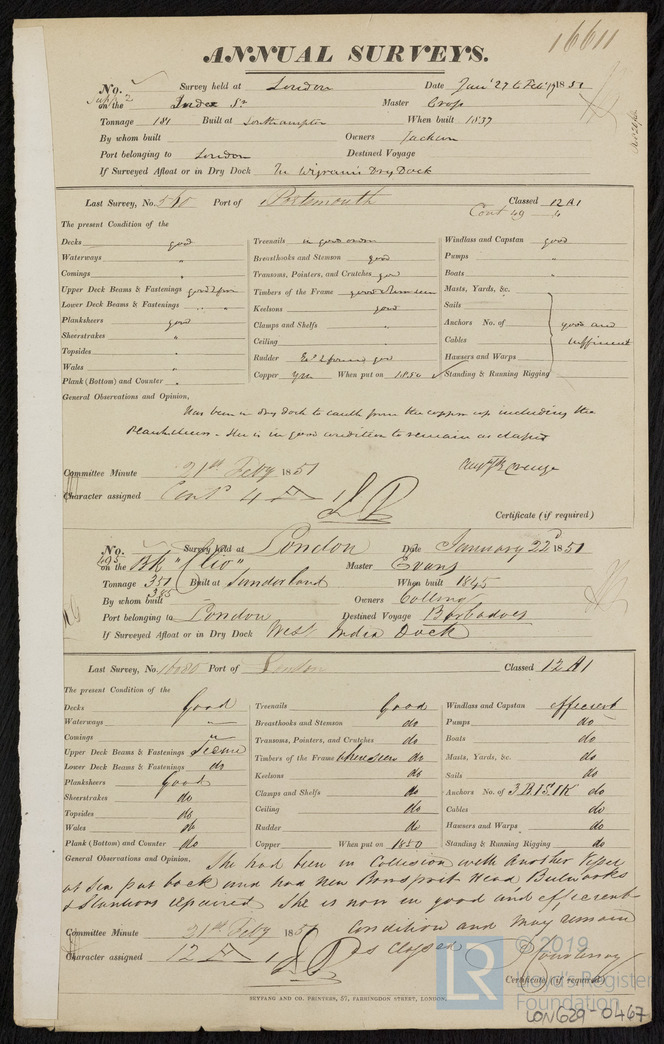 16611
ANNUAL SURVEYS.
No. Survey held at London Date Jany 27 to Feby 19 1851
on the Index Sr Master
Tonnage 181 Built at Southampton When built 1837
By whom built Owners Jackson
Port belonging to London Destined Voyage
If Surveyed Afloat or in Dry Dock In Wigrams Dry Dock
Last Survey, No. 580 Port of Portsmouth Classed 12 A1
Cont 49 4
The present Condition of the
Decks good Treenails in good order Windlass and Capstan good
Waterways " Breasthooks and Stemson good Pumps "
Comings " Transoms, Pointers, and Crutches good Boats "
Upper Deck Beams & Fastenings good & firm Timbers of the Frame good where seen Masts, Yards, &c.
Lower Deck Beams & Fastenings " " Keelsons good Sails
Planksheers good Clamps and Shelfs " Anchors No. of good and
Sheerstrakes " Ceiling " Cables sufficient
Topsides " Rudder Exd & found good Hawsers and Warps
Wales " Copper When put on 1850 Standing & Running Rigging
Plank (Bottom) and Counter "
General Observations and Opinion,
Has been in dry dock to caulk from the copper up including the
Planksheers - She is in good condition to remain as classed
Committee Minute 21st Feby 1851
Character assigned Contd 4 A 1
Certificate (if required)
No. Survey held at London Date January 22d 1851
on the Bk "Clio" Master Evans
Tonnage 351 Built at Sunderland When built 1845
385
By whom built Owners Collings
Port belonging to London Destined Voyage Barbadoes
If Surveyed Afloat or in Dry Dock West India Dock
Last Survey, No. 16080 Port of London Classed 12 A1
The present Condition of the
Decks Good Treenails Good Windlass and Capstan efficient
Waterways " Breasthooks and Stemson do Pumps do
Comings " Transoms, Pointers, and Crutches do Boats do
Upper Deck Beams & Fastenings Secure Timbers of the Frame where seen do Masts, Yards, &c. do
Lower Deck Beams & Fastenings do Keelsons do Sails do
Planksheers Good Clamps and Shelfs do Anchors No. of 3 B 1 S 1 K do
Sheerstrakes do Ceiling do Cables do
Topsides do Rudder do Hawsers and Warps do
Wales do Copper When put on 1850 Standing & Running Rigging do
Plank (Bottom) and Counter do
General Observations and Opinion. She had been in Collision with another Vessel
at Sea put back and had New Bowsprit Head Bulwarks
& Stantions repaired She is now in good and efficient
Condition and may remain
as Classed
Committee Minute 21st Feby 1851
Character assigned 12 A 1
Courtenay
Certificate (if required)
SEYFANG AND CO. PRINTERS, 57, FARRINGDON STREET, LONDON.
© 2019
LR Lloyd's Register
Foundation
LON629-0467